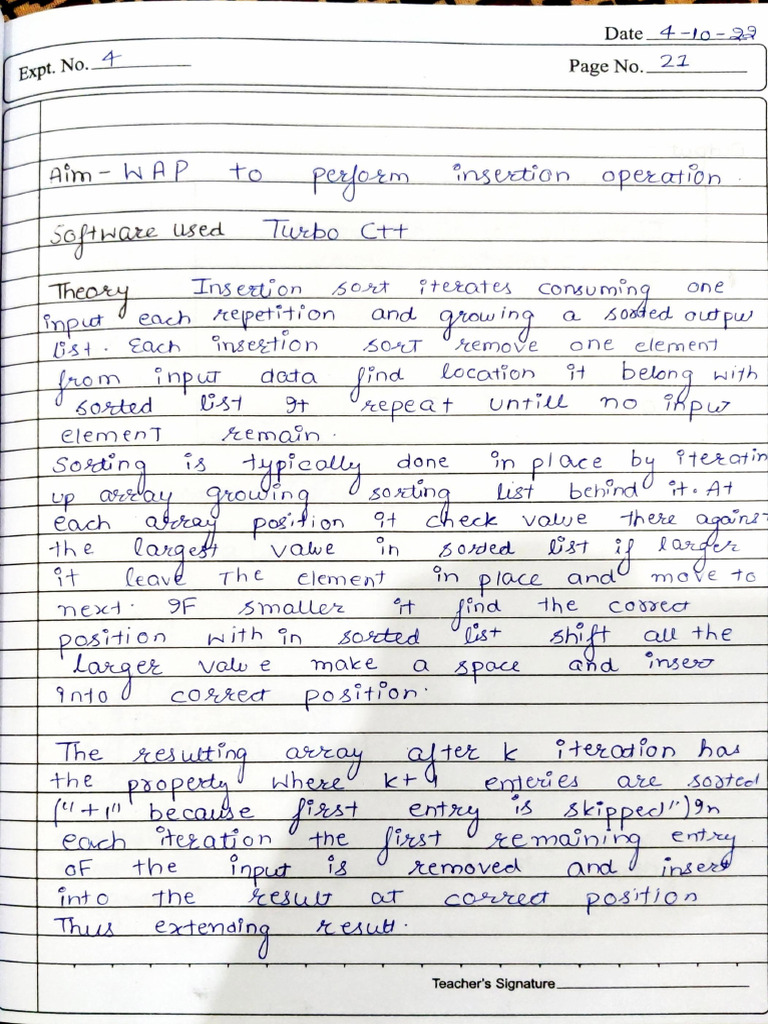 Date 4-10-22
Expt. No. 4
Page No. 21
Aim - WAP to perform insertion operation.
Software used Turbo C++
Theory Insertion sort iterates consuming one
input each repetition and growing a sorted outpu
list. Each insertion sort remove one element
from input data find location it belong with
sorted list It repeat untill no input
element remain.
Sorting is typically done in place by iteratin
up array growing sorting list behind it. At
each array position it check value there against
the largest value in sorted list if larger
it leave The element in place and move to
next. IF smaller it find the correct
position with in sorted list shift all the
larger value make a space and insert
into correct position.
The resulting array after k iteration has
the property where k+1 enteries are sorted
("+1" because first entry is skipped") In
each iteration the first remaining entry
OF the input is removed and insert
into the result at correct position
Thus extending result.
Teacher's Signature